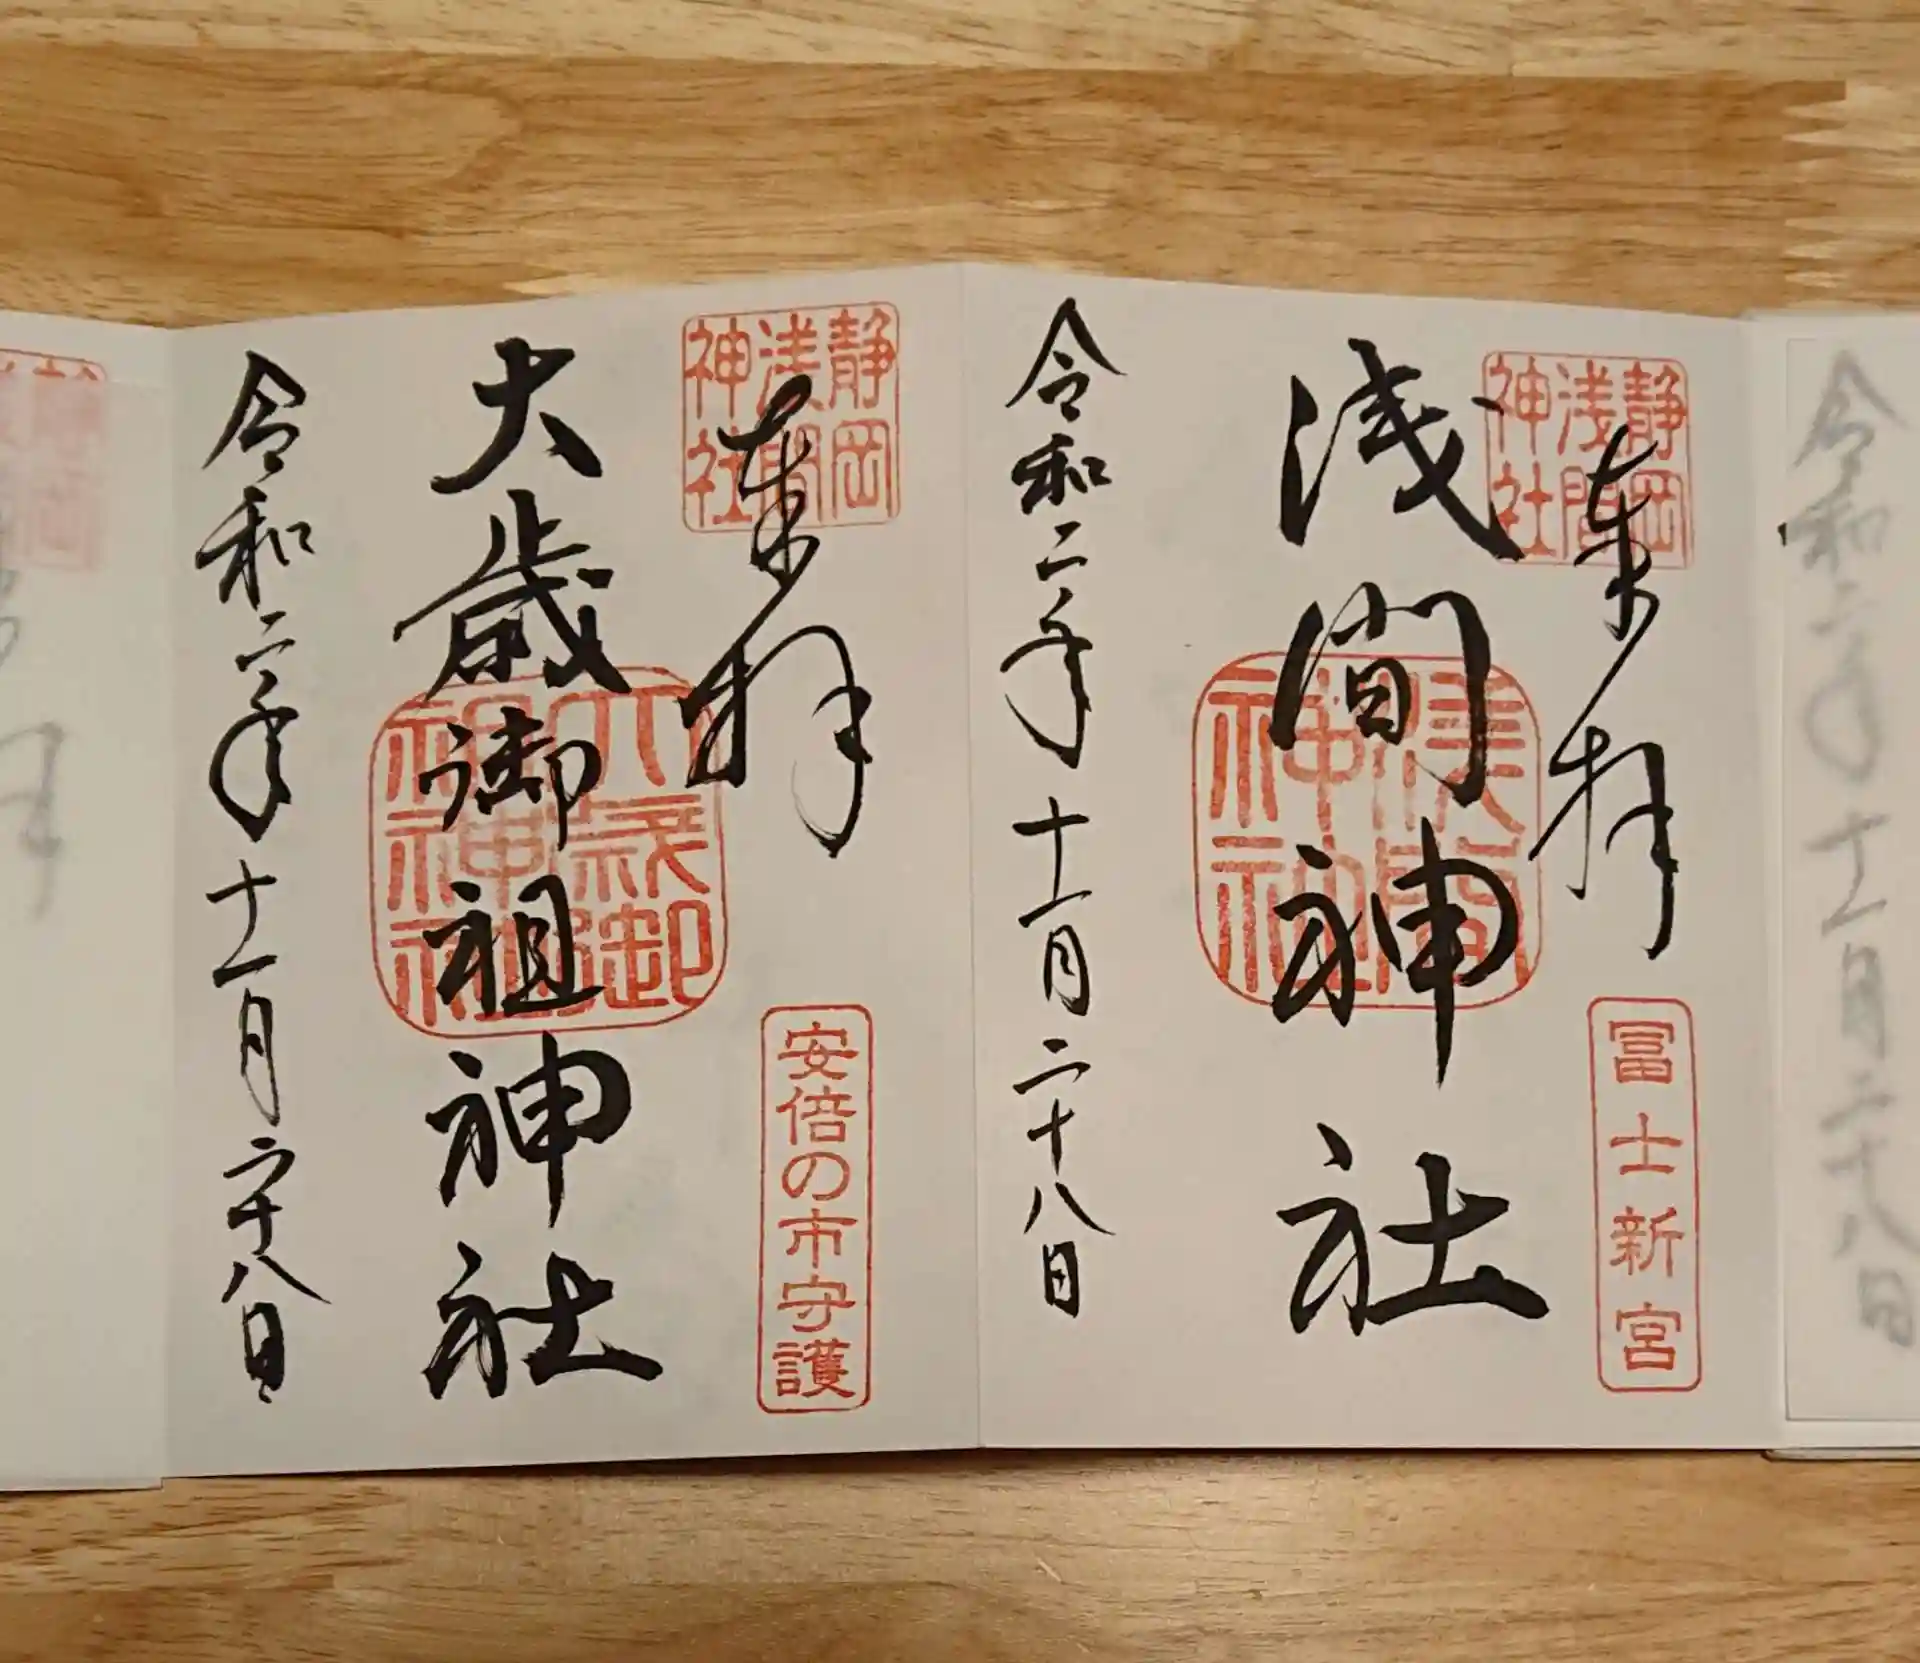 奉拝
静岡
浅間
神社
浅間神社
浅間
神社
冨士新宮
令和二年十一月二十八日
奉拝
静岡
浅間
神社
大歳御祖神社
大歳御
祖神社
安倍の市守護
令和二年十一月二十八日
令和二年十一月二十八日